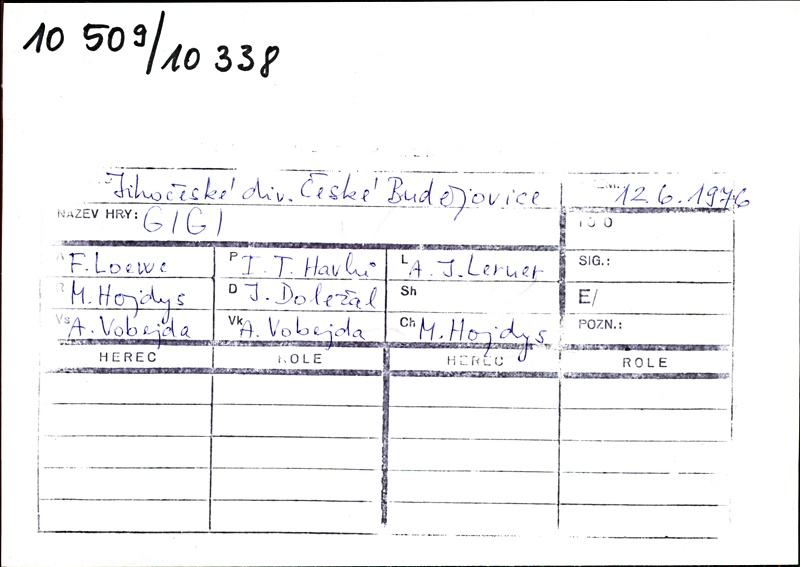 10 509/10 338
Jihočeské div. České Budějovice 12.6.1976
NÁZEV HRY: GIGI
F. Loewe P I. T. Havlů L A. J. Lerner SIG.:
R M. Hojdys D J. Doležal Sh E/
Vs A. Vobejda Vk A. Vobejda Ch M. Hojdys POZN.:
HEREC ROLE HEREC ROLE